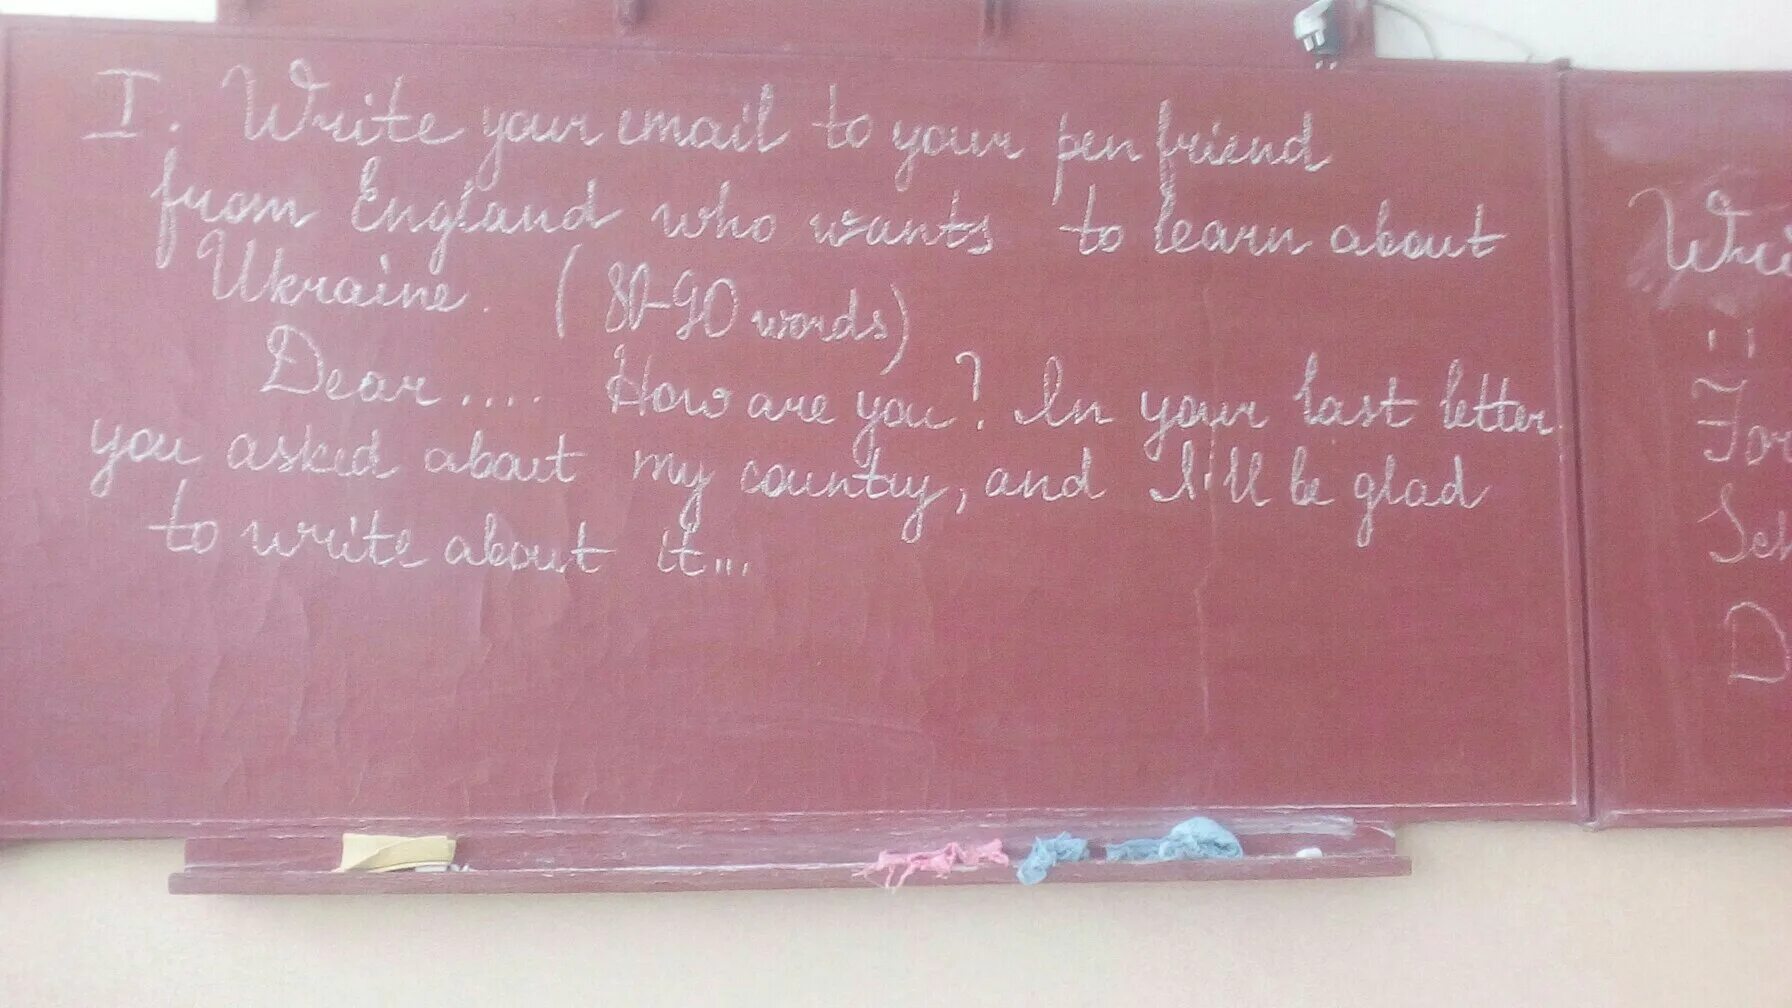 I. Write your email to your pen friend
from England who wants to learn about
Ukraine. (80-90 words)
Dear.... How are you? In your last letter
you asked about my country, and I'll be glad
to write about it...
Wri
For
Sch
D